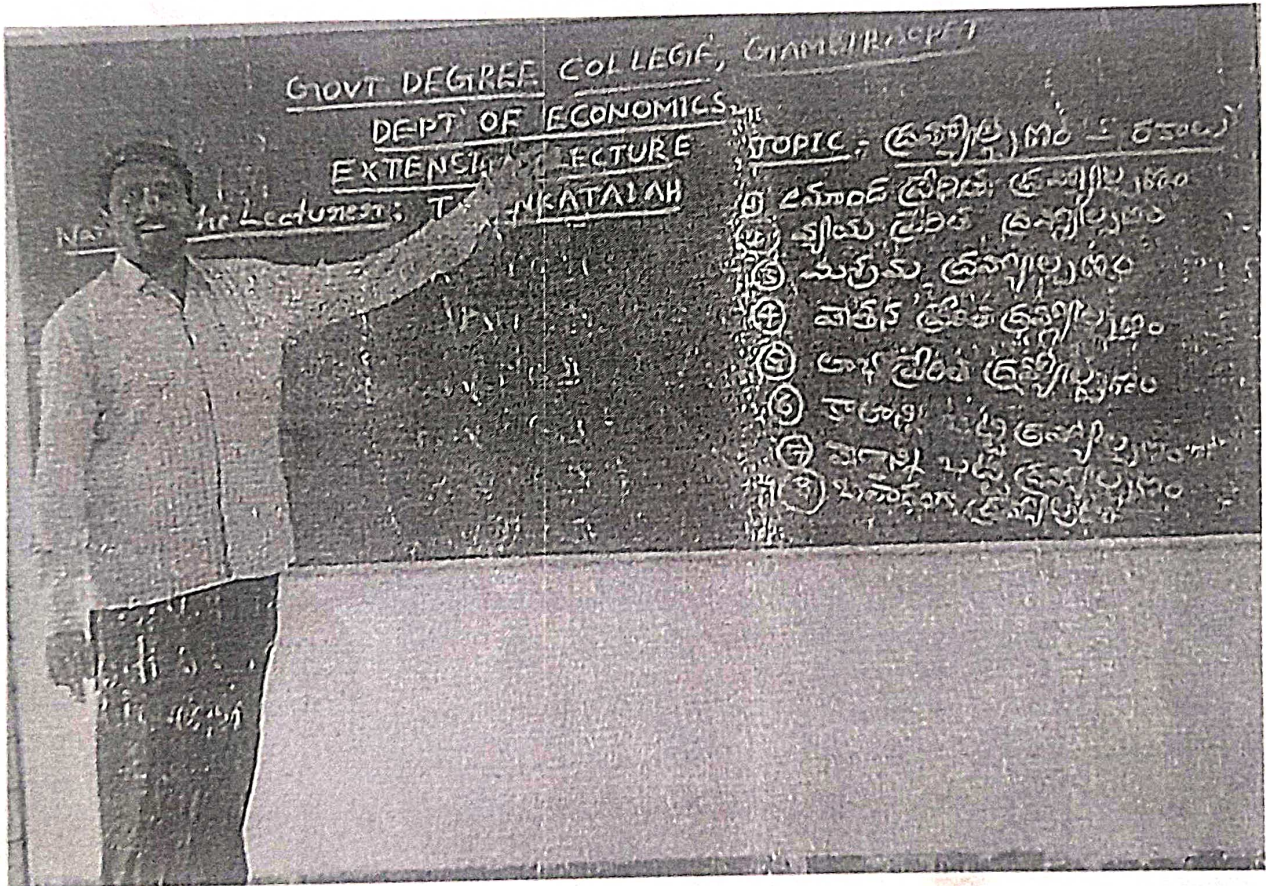 GOVT DEGREE COLLEGE, GAMBIRAOPET
DEPT OF ECONOMICS
EXTENSI LECTURE
Na he Lecturer: T NKATAIAH
TOPIC: ద్రవ్యోల్బణం - రకాలు
① డిమాండ్ ప్రేరిత ద్రవ్యోల్బణం
② వ్యయ ప్రేరిత ద్రవ్యోల్బణం
③ మిశ్రమ ద్రవ్యోల్బణం
④ వేతన ప్రేరిత ద్రవ్యోల్బణం
⑤ లాభ ప్రేరిత ద్రవ్యోల్బణం
⑥ కాలాన్ని బట్టి ద్రవ్యోల్బణం
⑦ వేగాన్ని బట్టి ద్రవ్యోల్బణం
⑧ ద్రవ్యోల్బణం